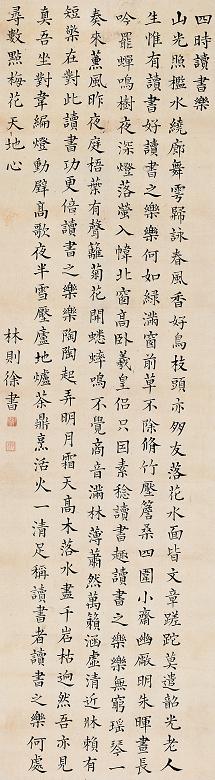 四時讀書樂
山光照檻水繞廊舞雩歸詠春風香好鳥枝頭亦朋友落花水面皆文章蹉跎莫遣韶光老人
生惟有讀書好讀書之樂樂何如綠滿窗前草不除脩竹壓簷桑四圍小齋幽敞明朱暉晝長
吟罷蟬鳴樹夜深燈落螢入幃北窗高臥羲皇侶只因素稔讀書趣讀書之樂樂無窮瑤琴一
奏來薰風昨夜庭梧葉有聲籬菊花開蟋蟀鳴不覺商音滿林薄蕭然萬籟涵虛清近牀賴有
短檠在對此讀書功更倍讀書之樂樂陶陶起弄明月霜天高木落水盡千岩枯迥然吾亦見
真吾坐對韋編燈動壁高歌夜半雪壓廬地爐茶鼎烹活火一清足稱讀書者讀書之樂何處
尋數點梅花天地心
林則徐書